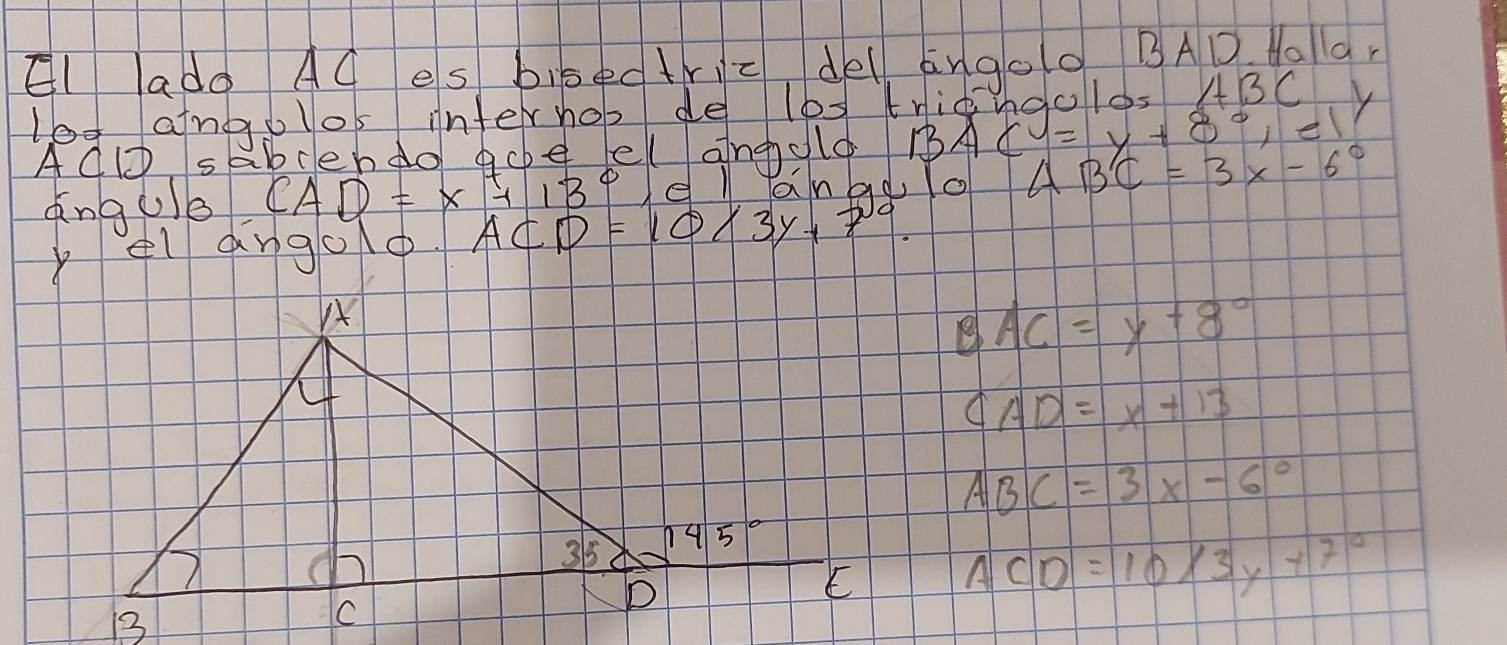 El lado AC es bisectriz del ángulo BAD. Hallar
los ángulos internos de los triángulos ABC y
ACD sabiendo que el ángulo BAC = y + 8°, el
ángulo CAD = x + 13°, el ángulo ABC = 3x - 6°
y el ángulo ACD = 10/3y + 7°.
A
BAC = y + 8°
CAD = x + 13
ABC = 3x - 6°
35 145°
ACD = 10/3y + 7°
B C D E